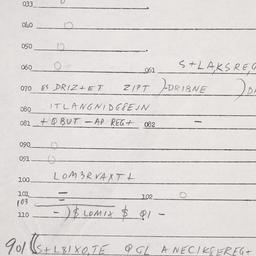 033
040
050
060 061 S+LAKSREG
070 ES DRIZ+ET ZIPT )-DRIBNE )D
080 ITLANGNIDGEEJN
081 +QBUT-AP REG+ 082 -
090
091
100 LOM3RVAXT+
101 = 102
103
110 -)$LOMIX $ QI-
901 (S+LBIXO,TE QGL ANECIKSEREG+